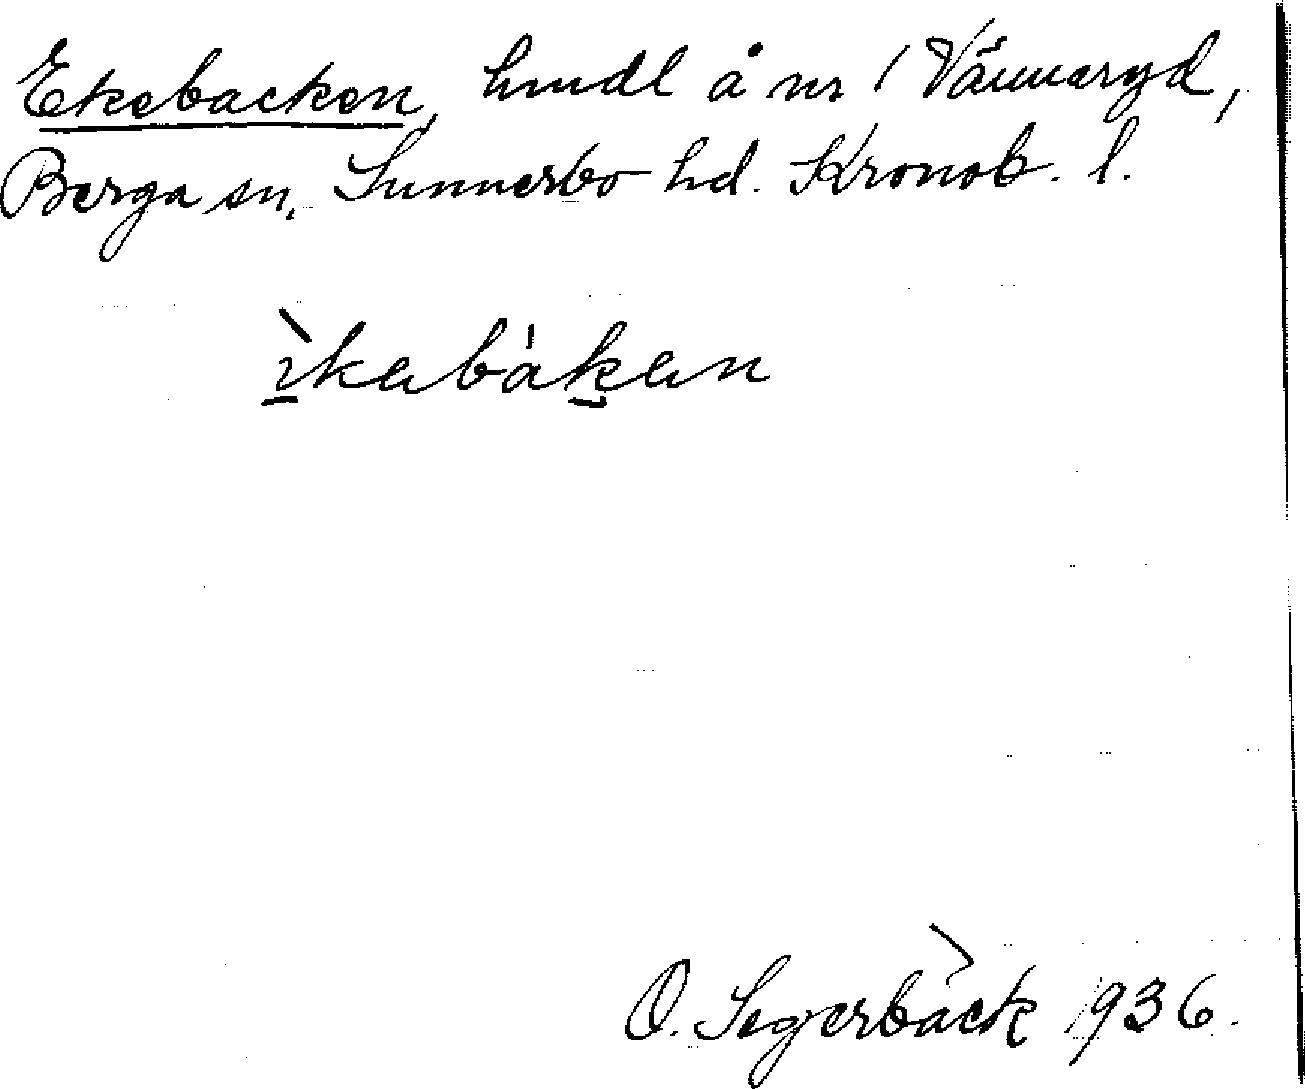 Ekebacken, hmdl å nr 1 Vännaryd,
Berga sn, Sunnerbo hd. Kronob. l.
ɩ̀kabákan
O. Segerbäck 1936.